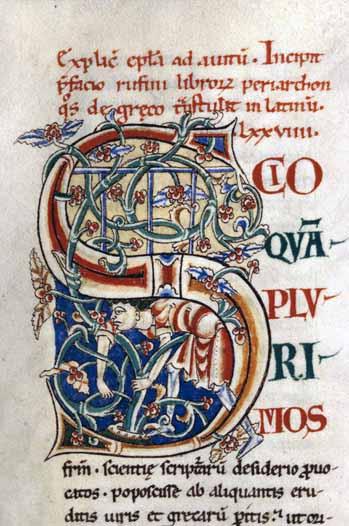 Explic̄ epl̄a ad auitū. Incipit
p̄facio rufini libroꝝ periarchon
q̄s de greco t̄nstulit in latinū.
lxxviiii.
SCIO
QVĀ
PLV
RI
MOS
frm̄. scientię scripturarū desiderio ꝓuo
catos. poposcisse ab aliquantis eru
ditis uiris et grecarū